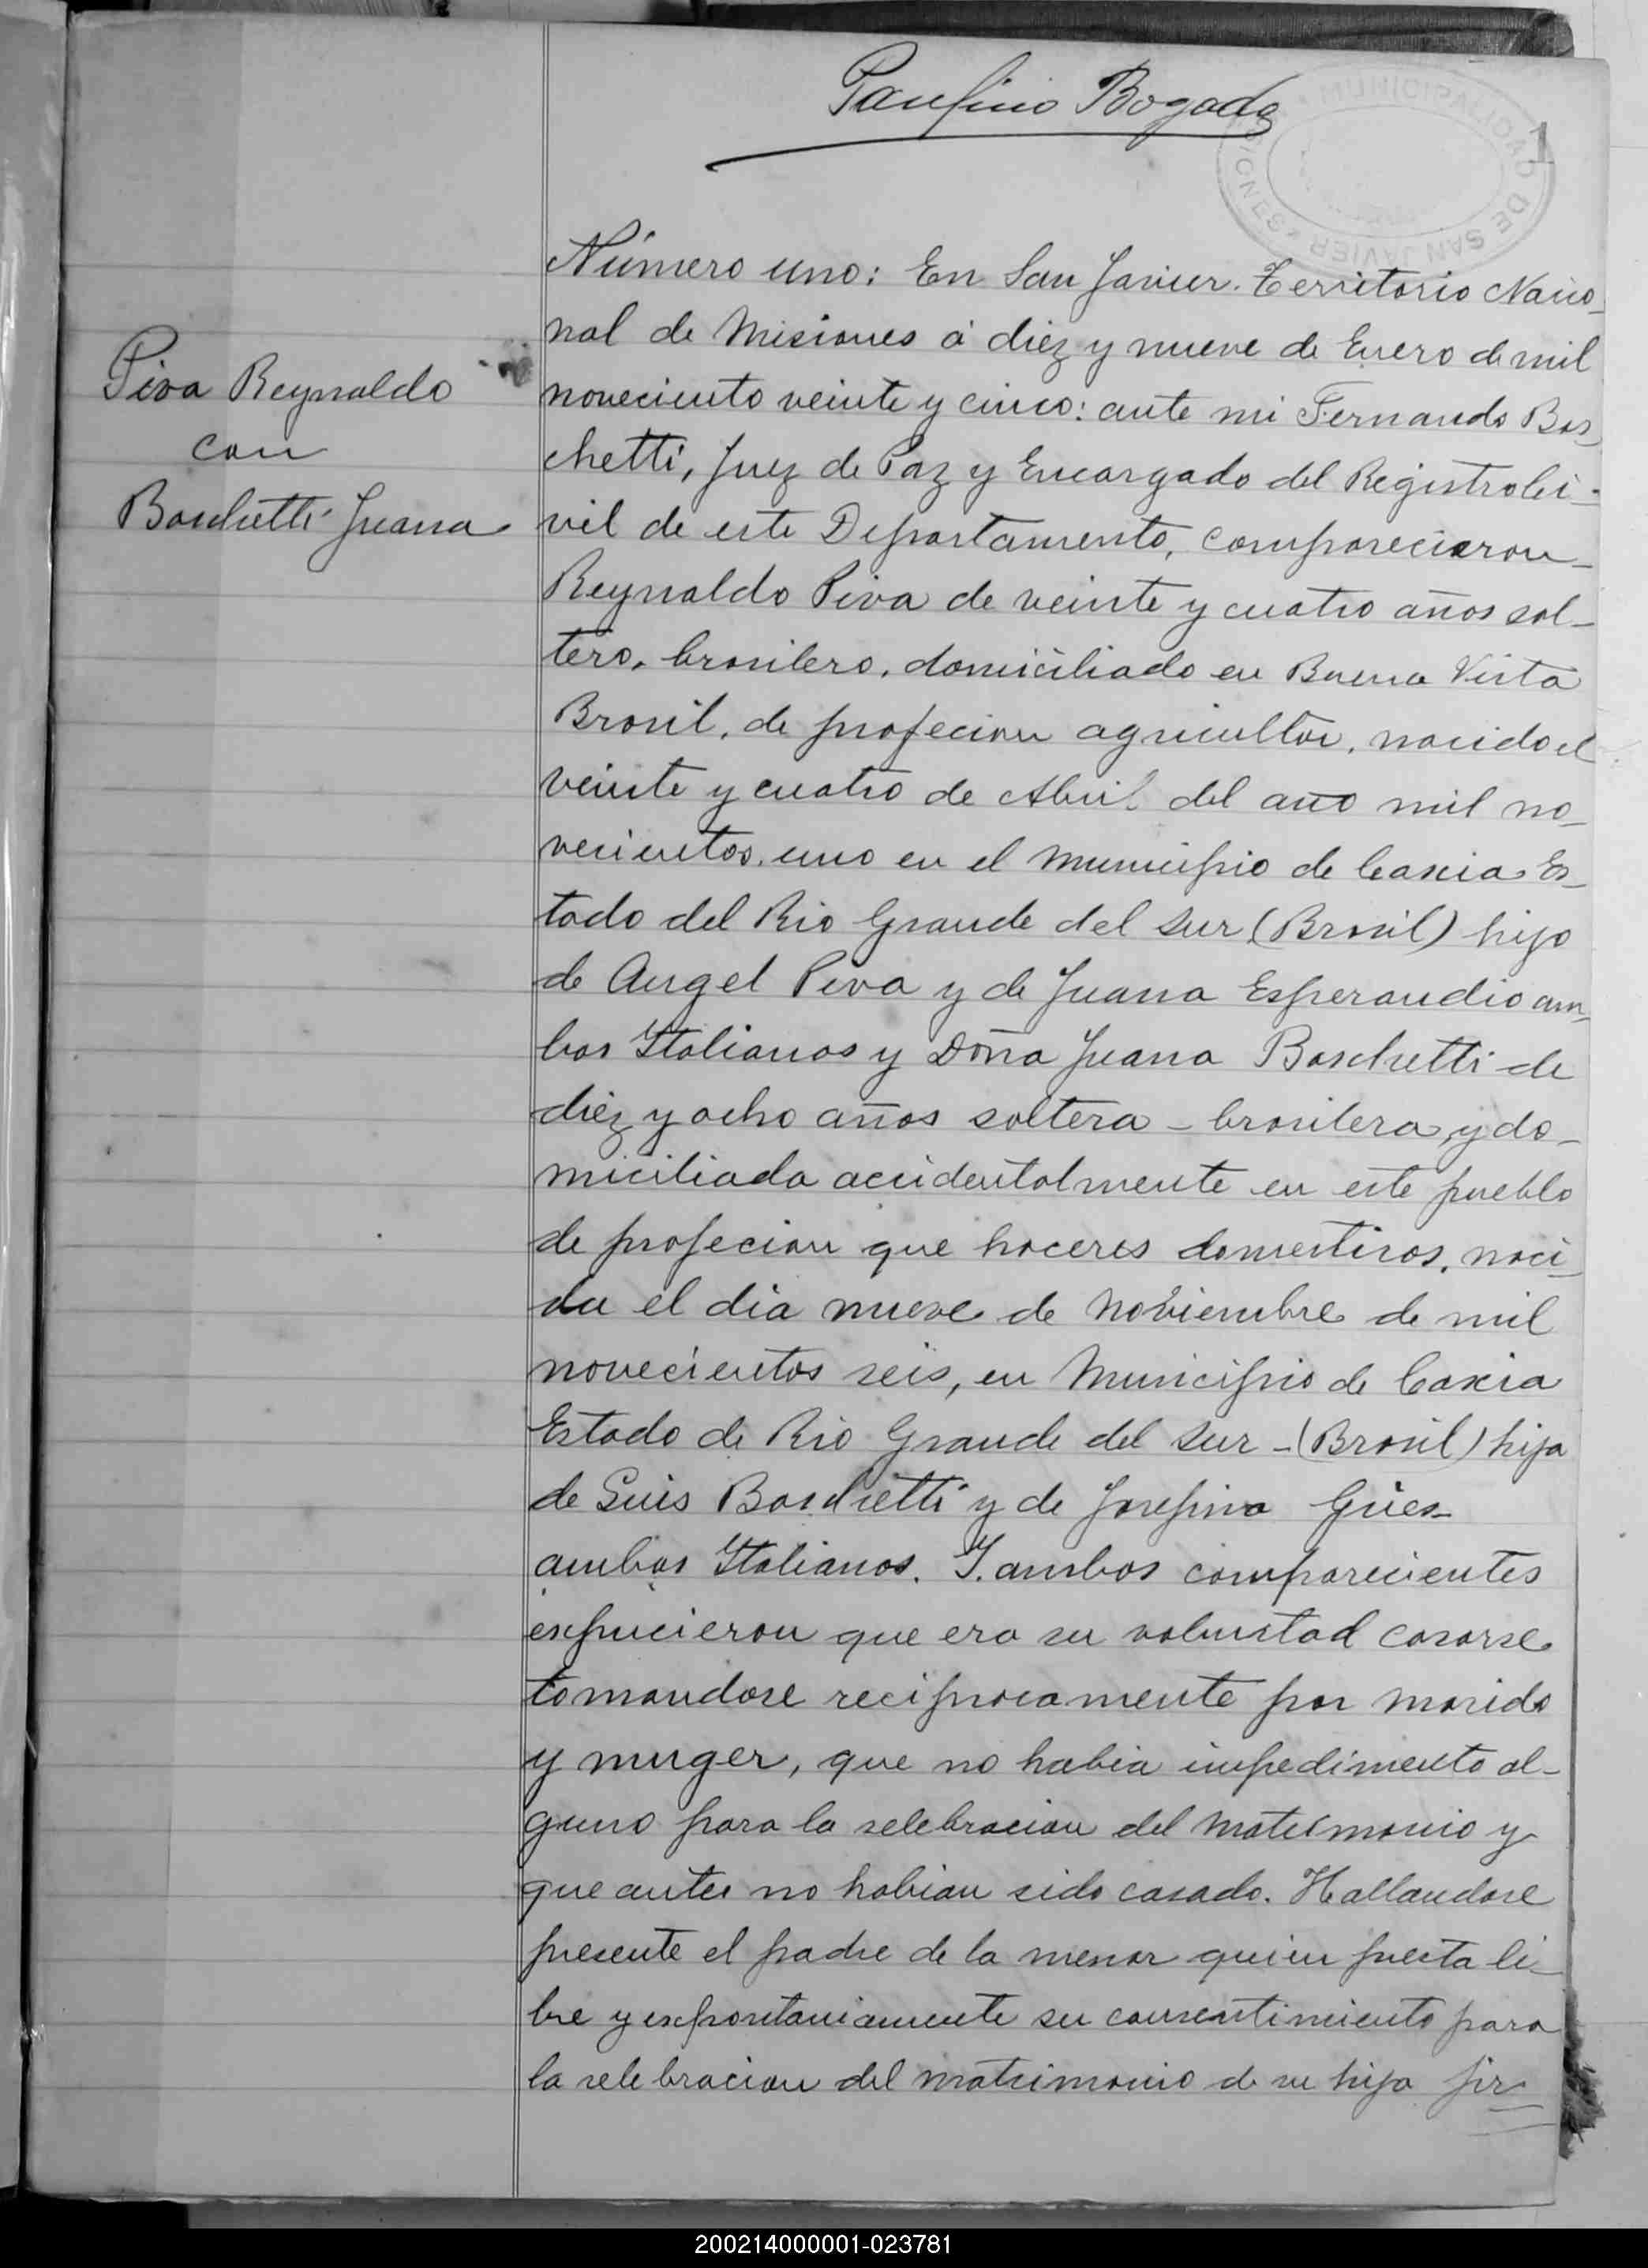 Paulino Bogado
MUNICIPALIDAD DE SAN JAVIER MISIONES
1
Piva Reynaldo
con
Boschetti Juana
Número uno: En San Javier. Territorio Nacio_
nal de Misiones á diez y nueve de Enero de mil
noveciento veinte y cinco: ante mi Fernando Bos_
chetti, Juez de Paz y Encargado del Registro Ci-
vil de este Departamento, comparecieron_
Reynaldo Piva de veinte y cuatro años sol_
tero, brasilero, domiciliado en Buena Vista
Brasil, de profecion agricultor, nacido el
veinte y cuatro de Abril del año mil no_
vecientos, uno en el Municipio de Caxia Es_
tado del Rio Grande del Sur (Brasil) hijo
de Angel Piva y de Juana Esperandio am_
bos Italianos y Doña Juana Boschetti de
diez y ocho años soltera - brasilera y do_
miciliada accidentalmente en este pueblo
de profecion que haceres domesticos, naci_
da el dia nueve de Noviembre de mil
novecientos seis, en Municipio de Caxia
Estado de Rio Grande del Sur - (Brasil) hija
de Luis Boschetti y de Josefina Gües_
ambos Italianos. Y. ambos comparecientes
expucieron que era su voluntad casarse
tomandose reciprocamente por marido
y muger, que no habia impedimento al_
guno para la selebracion del matrimonio y
que antes no habian sido casado. Hallandose
presente el padre de la menor quien presta li_
bre y expontaniamente su consentimiento para
la selebracion del matrimonio de su hija fir_
200214000001-023781